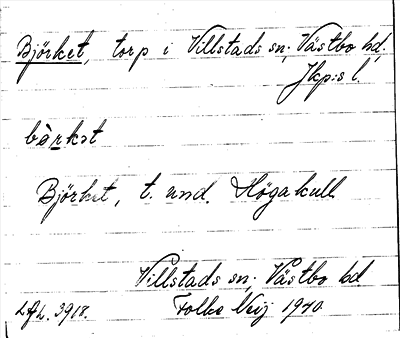 Björket, torp i Villstads sn; Västbo hd,
Jkp:s l.
bèrkət
Björket, t. und. Höga kull
Villstads sn; Västbo hd
LAL. 3918. Folke Neij 1940